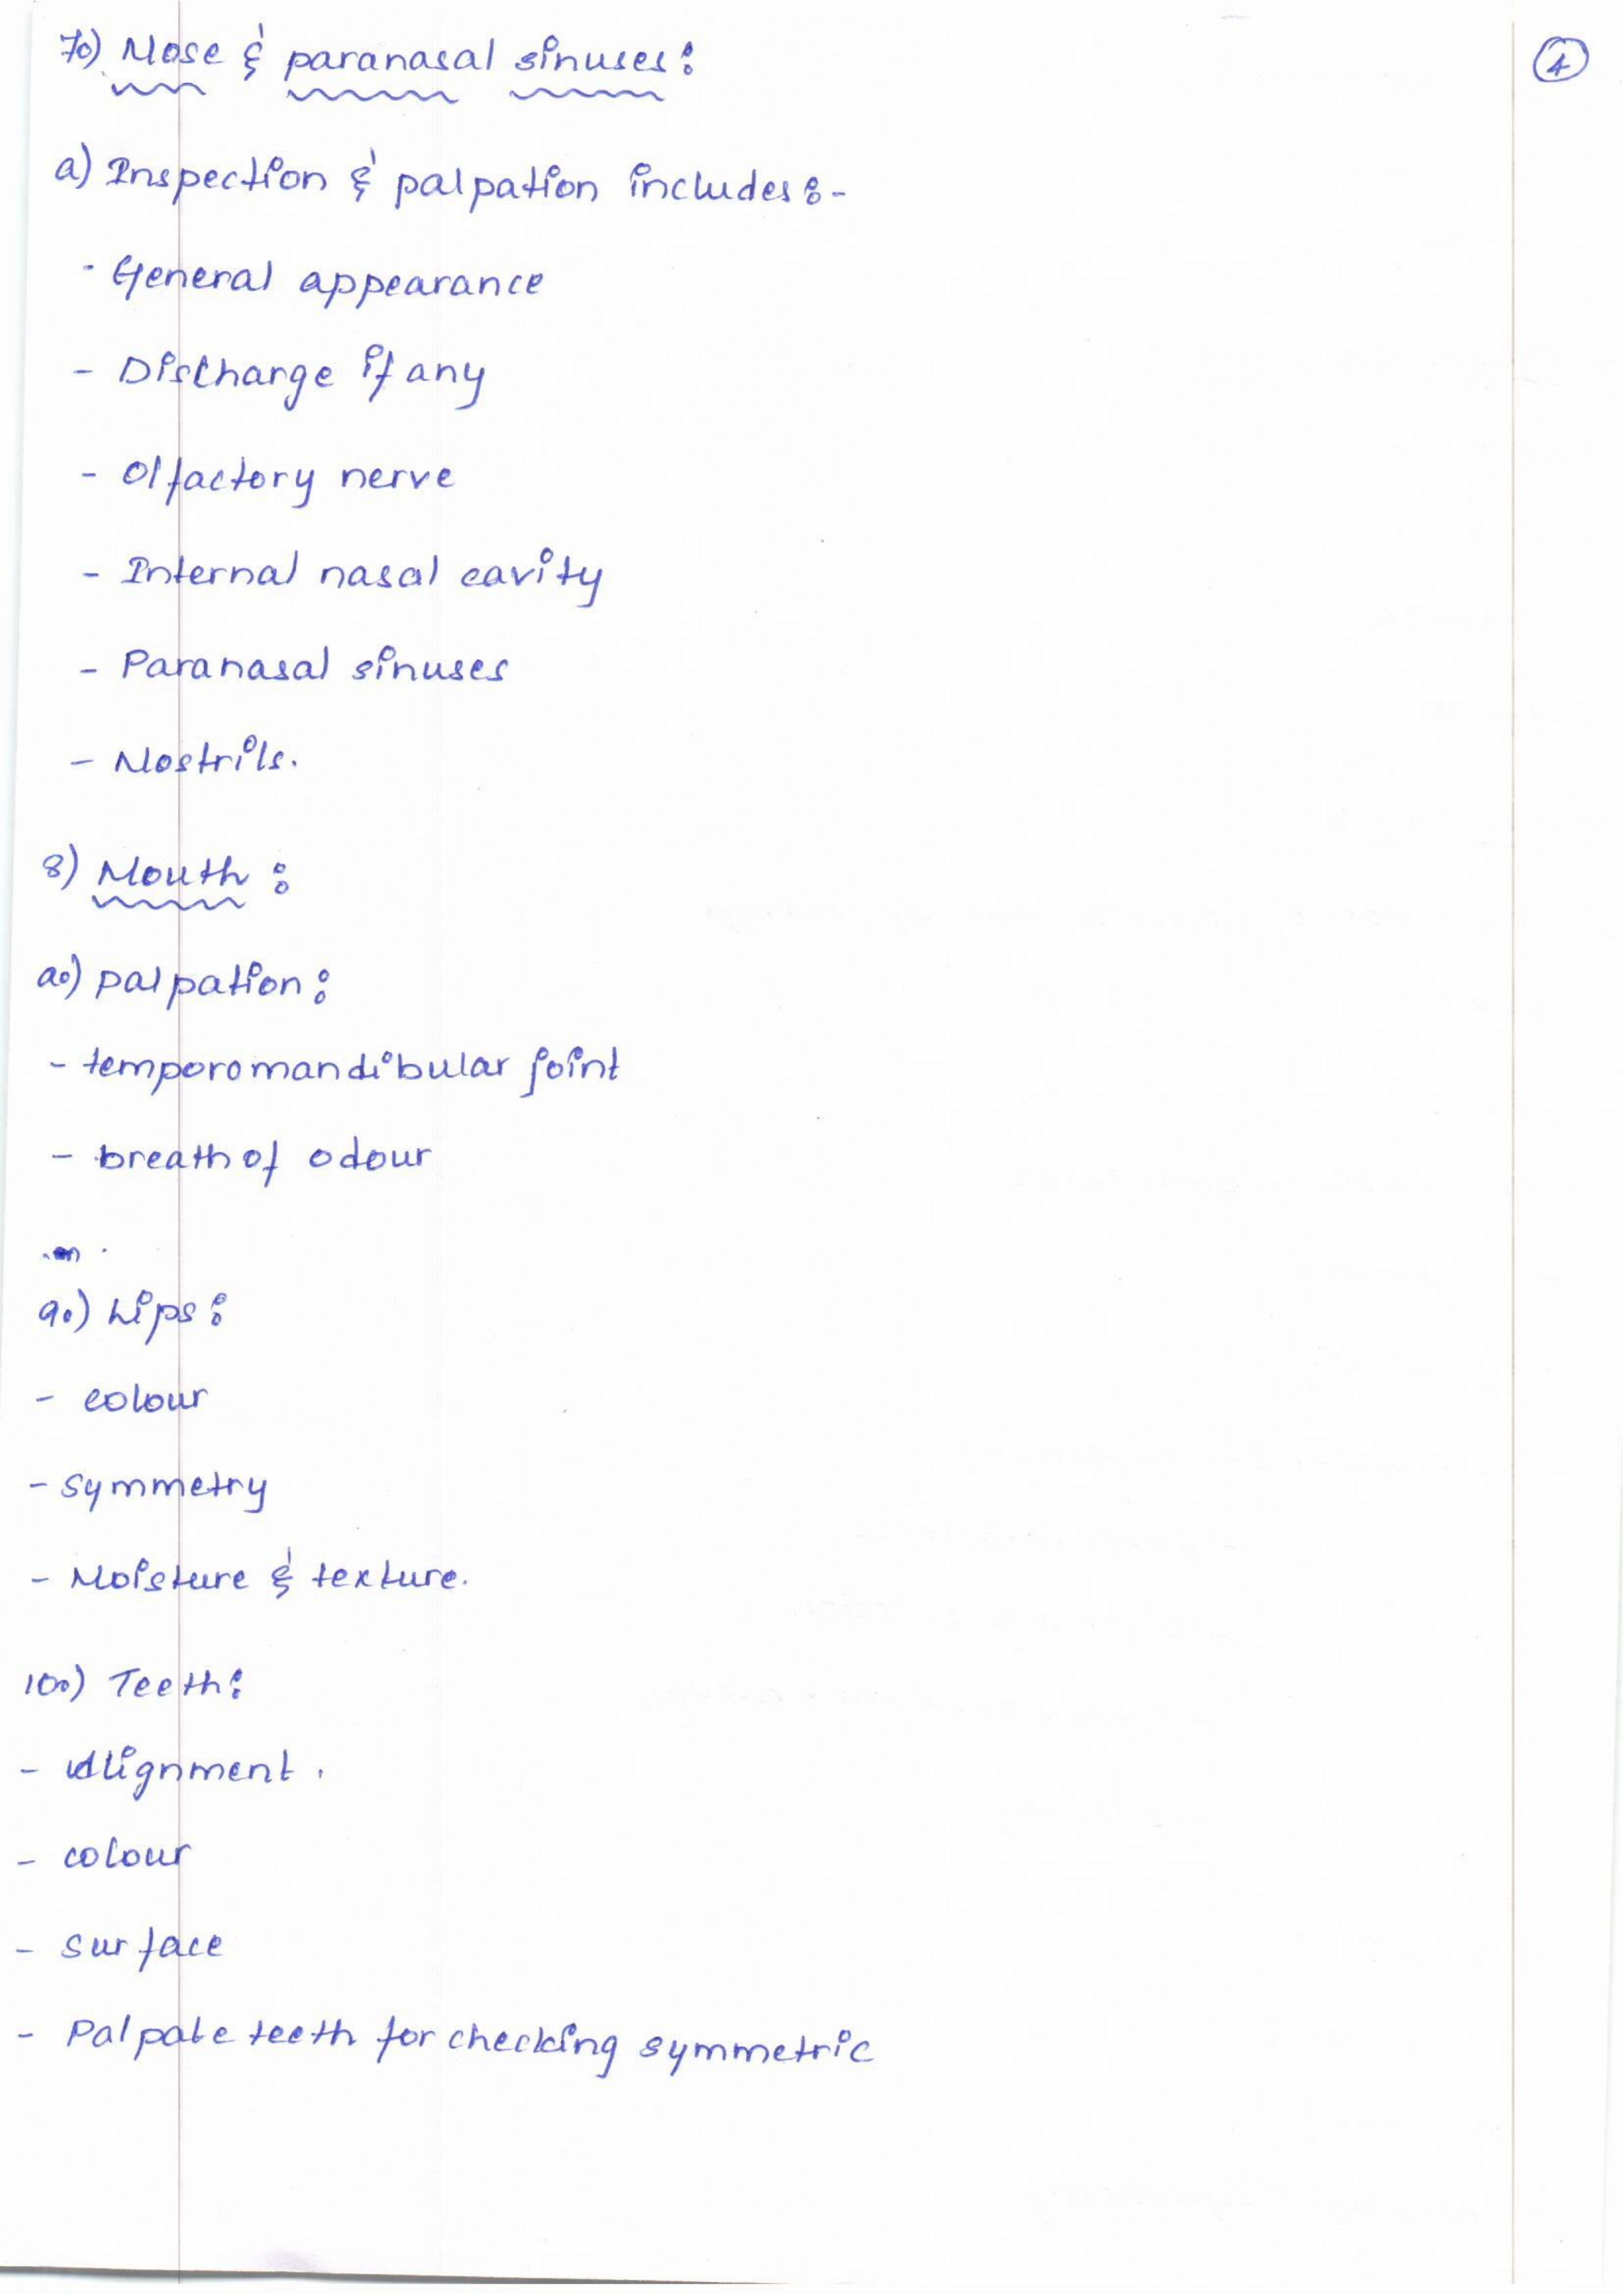 7.) Nose & paranasal sinuses:
4
a) Inspection & palpation includes:-
- General appearance
- Discharge if any
- Olfactory nerve
- Internal nasal cavity
- Paranasal sinuses
- Nostrils.
8) Mouth :
a.) palpation :
- temporomandibular joint
- breath of odour
9.) Lips :
- colour
- symmetry
- Moisture & texture.
10.) Teeth :
- Alignment.
- colour
- surface
- Palpate teeth for checking symmetric